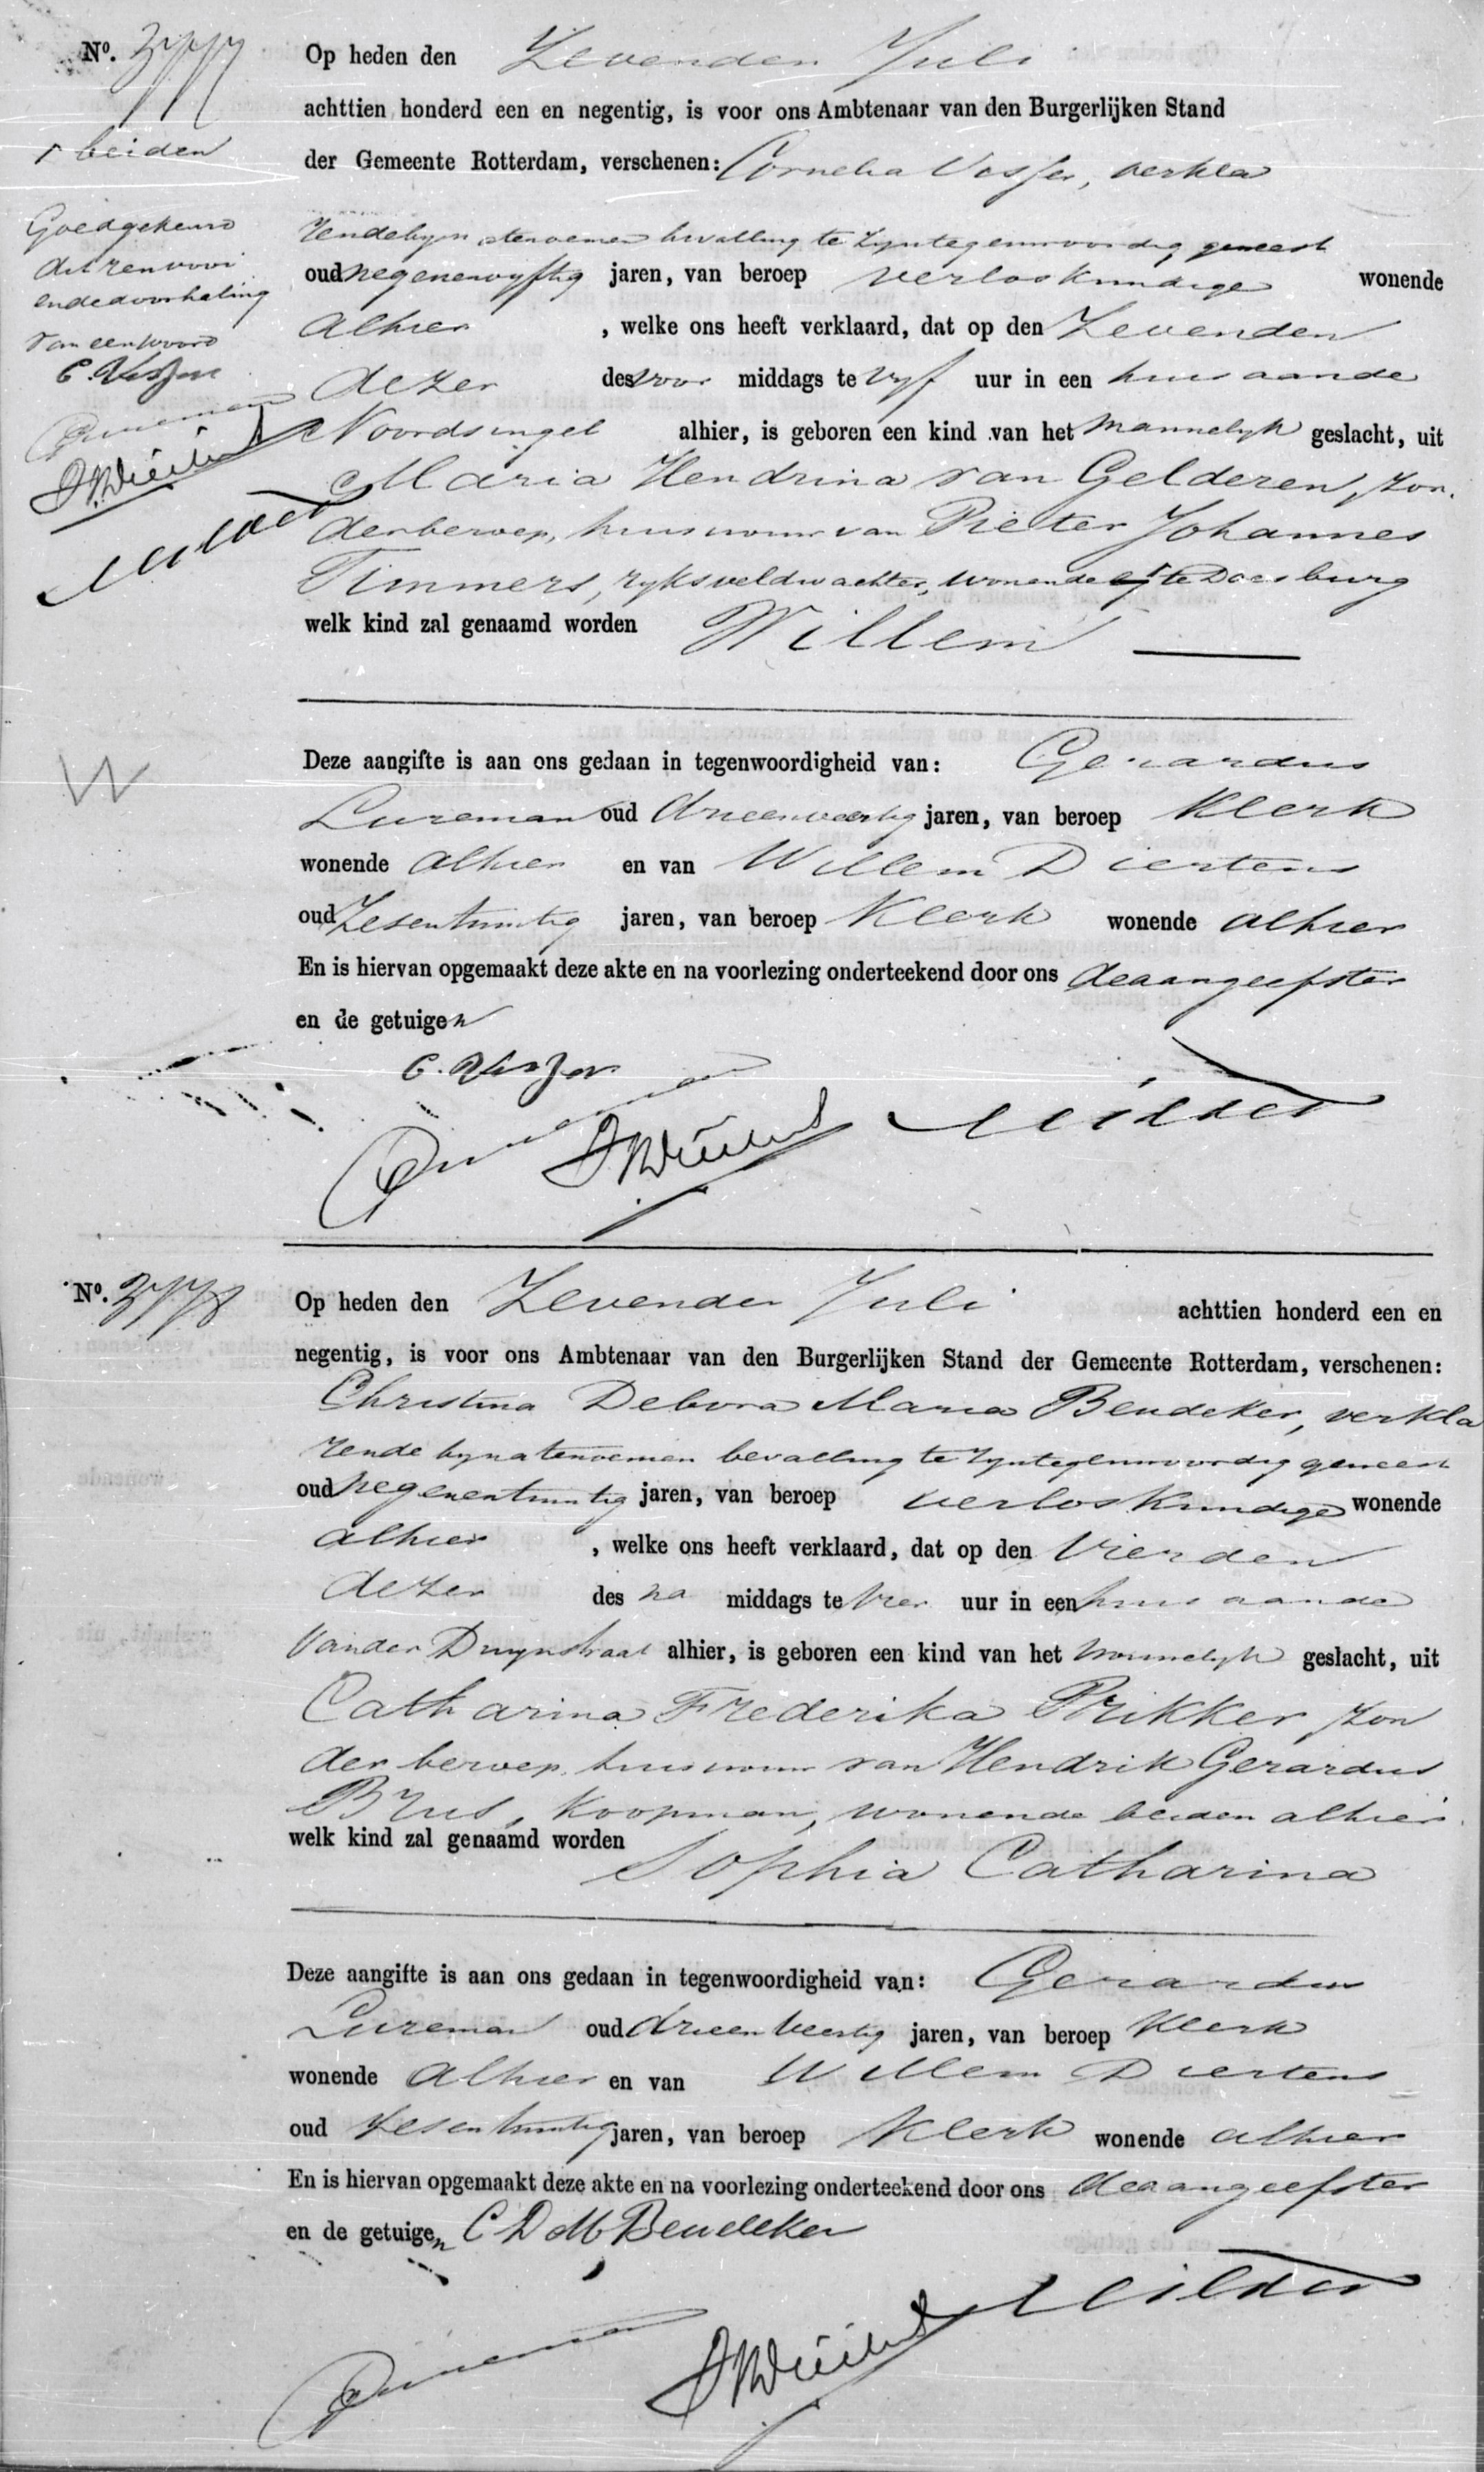 No. 3777
Op heden den Zevenden Juli
achttien honderd een en negentig, is voor ons Ambtenaar van den Burgerlijken Stand
der Gemeente Rotterdam, verschenen: Cornelia Vosser, verkla
rende bij na te noemen bevalling te zijn tegenwoordig geweest
oud negenenvyftig jaren, van beroep verloskundige wonende
alhier , welke ons heeft verklaard, dat op den Zevenden
dezer des voor middags te vyf uur in een huis aan de
Noordsingel alhier, is geboren een kind van het mannelyk geslacht, uit
Maria Hendrina van Gelderen, zon
der beroep, huisvrouw van Pieter Johannes
Timmers, ryksveldwachter, wonende te Doesburg
welk kind zal genaamd worden Willem
beiden
Goedgekeurd
dit renvooi
en de doorhaling
van een woord
C. Vosser
W
Deze aangifte is aan ons gedaan in tegenwoordigheid van: Gerardus
Lureman oud drieenveertig jaren, van beroep Klerk
wonende alhier en van Willem Diertens
oud Zesentwintig jaren, van beroep Klerk wonende alhier
En is hiervan opgemaakt deze akte en na voorlezing onderteekend door ons de aangeefster
en de getuigen
C. Vosser
No. 3778
Op heden den Zevenden Juli achttien honderd een en
negentig, is voor ons Ambtenaar van den Burgerlijken Stand der Gemeente Rotterdam, verschenen:
Christina Debora Maria Beudeker, verkla
rende by na te noemen bevalling te zyn tegenwoordig geweest
oud negenentwintig jaren, van beroep verloskundige wonende
alhier , welke ons heeft verklaard, dat op den Vierden
dezer des na middags te vier uur in een huis aan de
Van der Duynstraat alhier, is geboren een kind van het vrouwelyk geslacht, uit
Catharina Frederika Prikker, zon
der beroep, huisvrouw van Hendrik Gerardus
Brus, Koopman, wonende beiden alhier
welk kind zal genaamd worden
Sophia Catharina
Deze aangifte is aan ons gedaan in tegenwoordigheid van: Gerardus
Lureman oud drieenveertig jaren, van beroep Klerk
wonende alhier en van Willem Diertens
oud Zesentwintig jaren, van beroep Klerk wonende alhier
En is hiervan opgemaakt deze akte en na voorlezing onderteekend door ons de aangeefster
en de getuigen C D M Beudeker